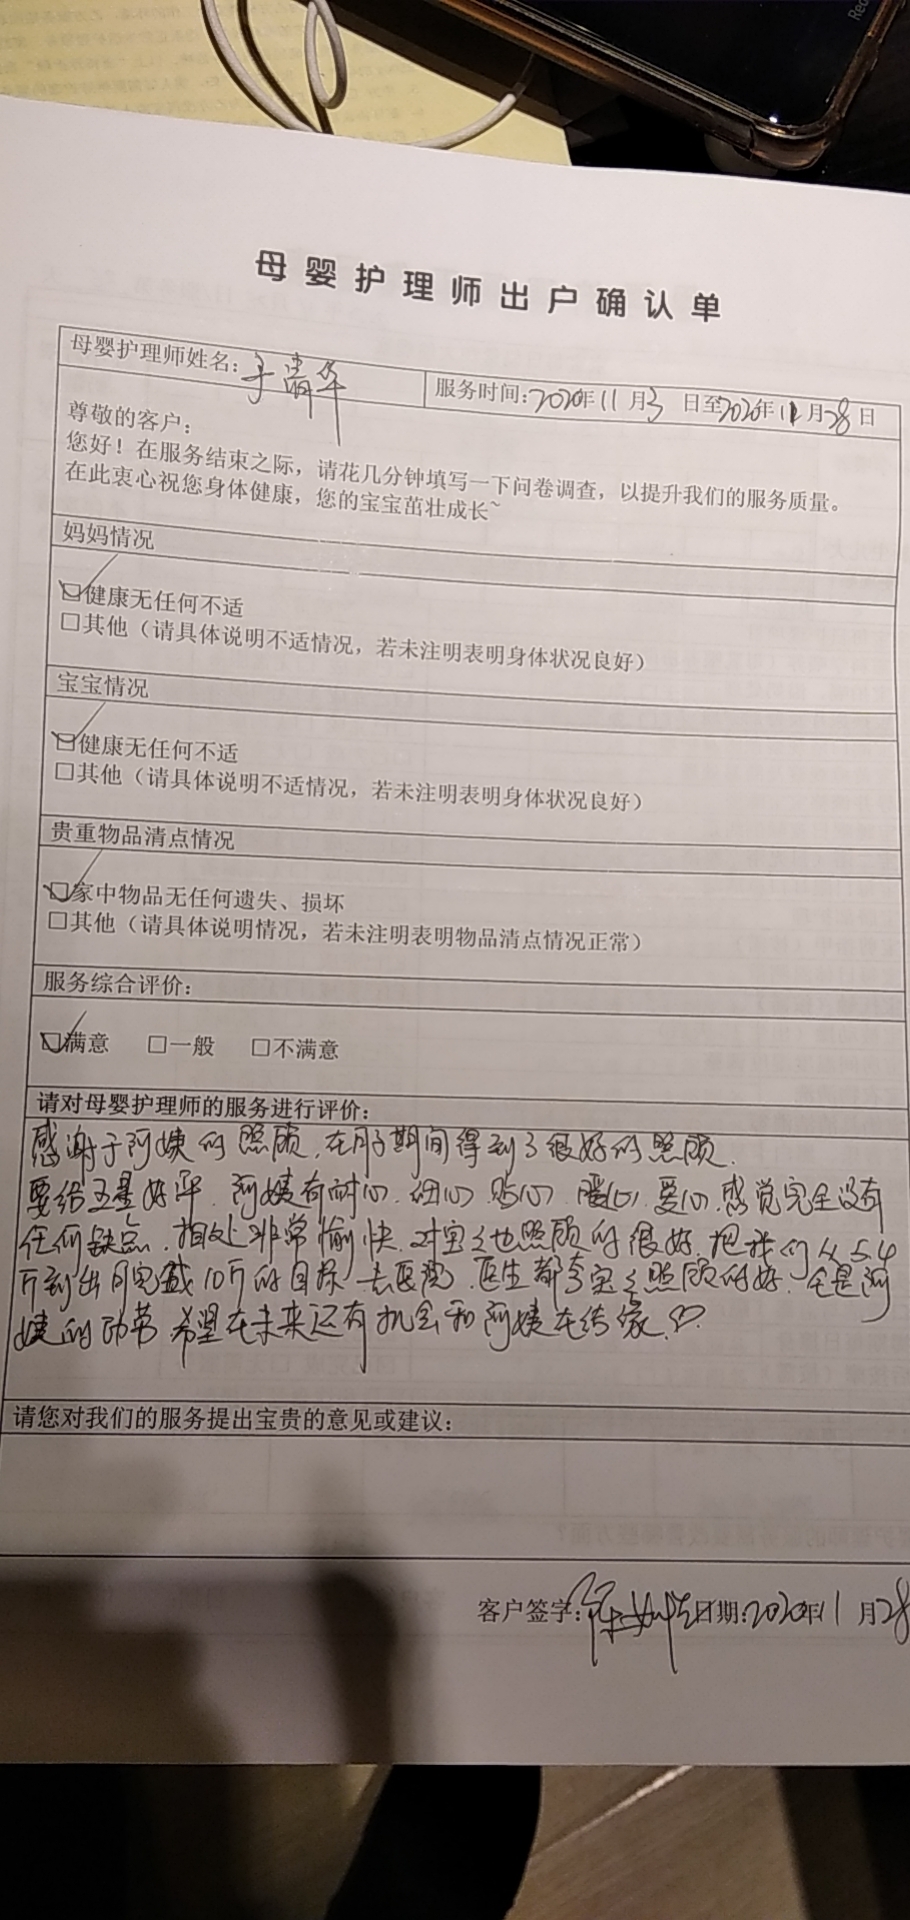 母婴护理师出户确认单
母婴护理师姓名：于清华
服务时间：2020年11月3日至2020年11月28日
尊敬的客户：
您好！在服务结束之际，请花几分钟填写一下问卷调查，以提升我们的服务质量。
在此衷心祝您身体健康，您的宝宝茁壮成长~
妈妈情况
☑健康无任何不适
□其他（请具体说明不适情况，若未注明表明身体状况良好）
宝宝情况
☑健康无任何不适
□其他（请具体说明不适情况，若未注明表明身体状况良好）
贵重物品清点情况
☑家中物品无任何遗失、损坏
□其他（请具体说明情况，若未注明表明物品清点情况正常）
服务综合评价：
☑满意 □一般 □不满意
请对母婴护理师的服务进行评价：
感谢于阿姨的照顾，在月子期间得到了很好的照顾，
要给五星好评，阿姨有耐心，细心，贴心，暖心，爱心，感觉完全没有
任何缺点，相处非常愉快，对宝宝也照顾的很好，把我们从5.4
斤到出月完成10斤的目标，去医院，医生都夸宝宝照顾的好，全是阿
姨的功劳，希望在未来还有机会和阿姨在续缘，♡
请您对我们的服务提出宝贵的意见或建议：
客户签字： 日期：2020年11月28